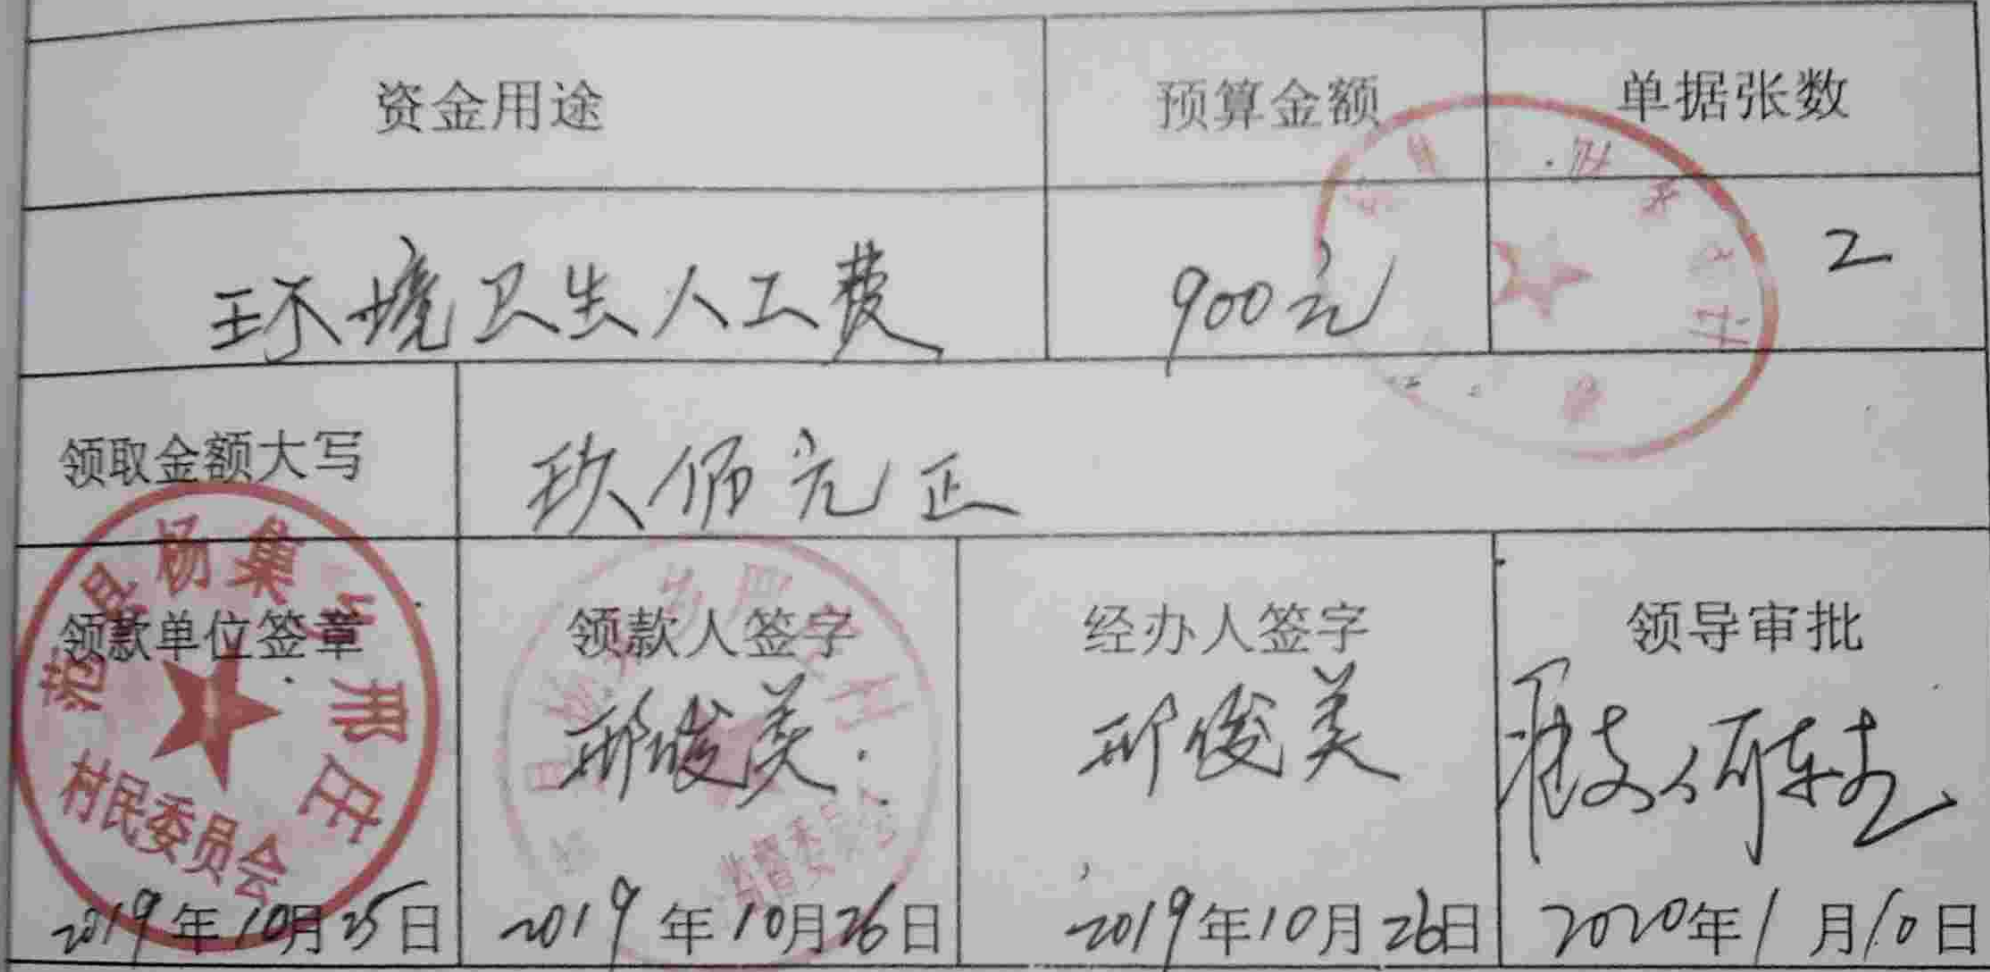 资金用途 预算金额 单据张数
环境卫生人工费 900元 2
领取金额大写 玖佰元正
领款单位签章 领款人签字 经办人签字 领导审批
邢俊美 邢俊美
范县杨集乡邢庄
村民委员会
监督委员会
2019年10月25日 2019年10月26日 2019年10月26日 2020年1月10日